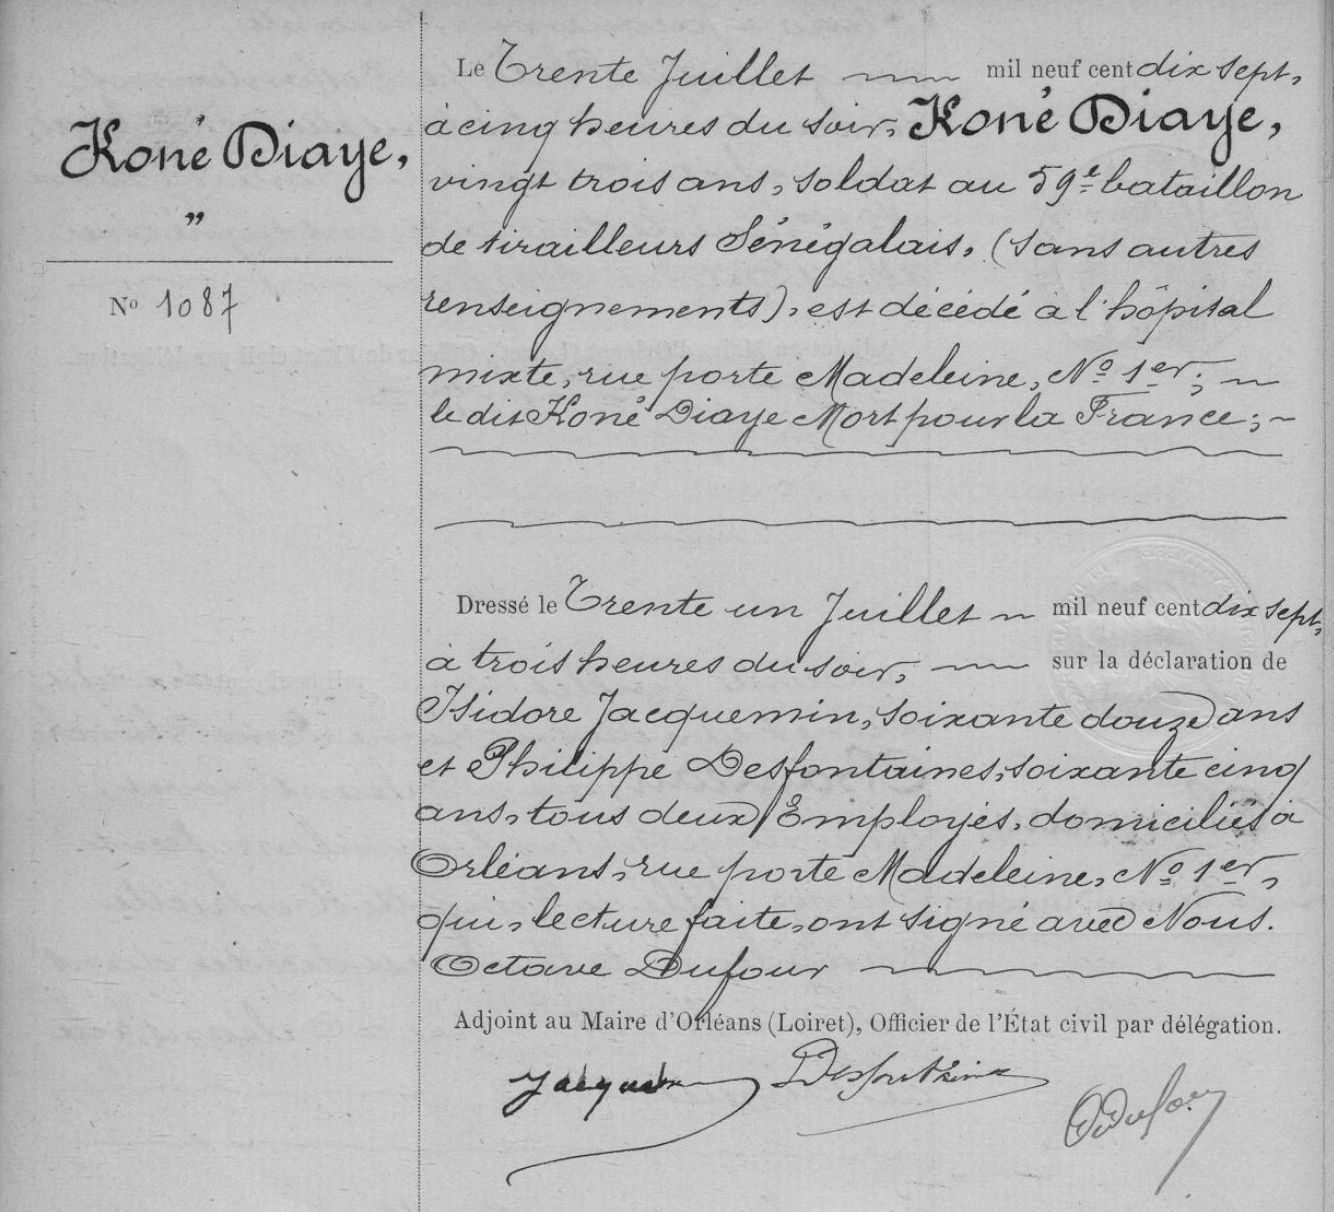 Koné Diaye,
"
Nº 1087
Le Trente Juillet mil neuf cent dix sept,
à cinq heures du soir, Koné Diaye,
vingt trois ans, soldat au 59e bataillon
de tirailleurs Sénégalais, (sans autres
renseignements), est décédé à l'hôpital
mixte, rue porte Madeleine, Nº 1er;
le dit Koné Diaye Mort pour la France;
Dressé le Trente un Juillet mil neuf cent dix sept,
à trois heures du soir, sur la déclaration de
Isidore Jacquemin, soixante douze ans
et Philippe Desfontaines, soixante cinq
ans, tous deux Employés, domiciliés à
Orléans, rue porte Madeleine, Nº 1er,
qui, lecture faite, ont signé avec Nous.
Octave Dufour
Adjoint au Maire d'Orléans (Loiret), Officier de l'État civil par délégation.
Desfontaines
ODufour